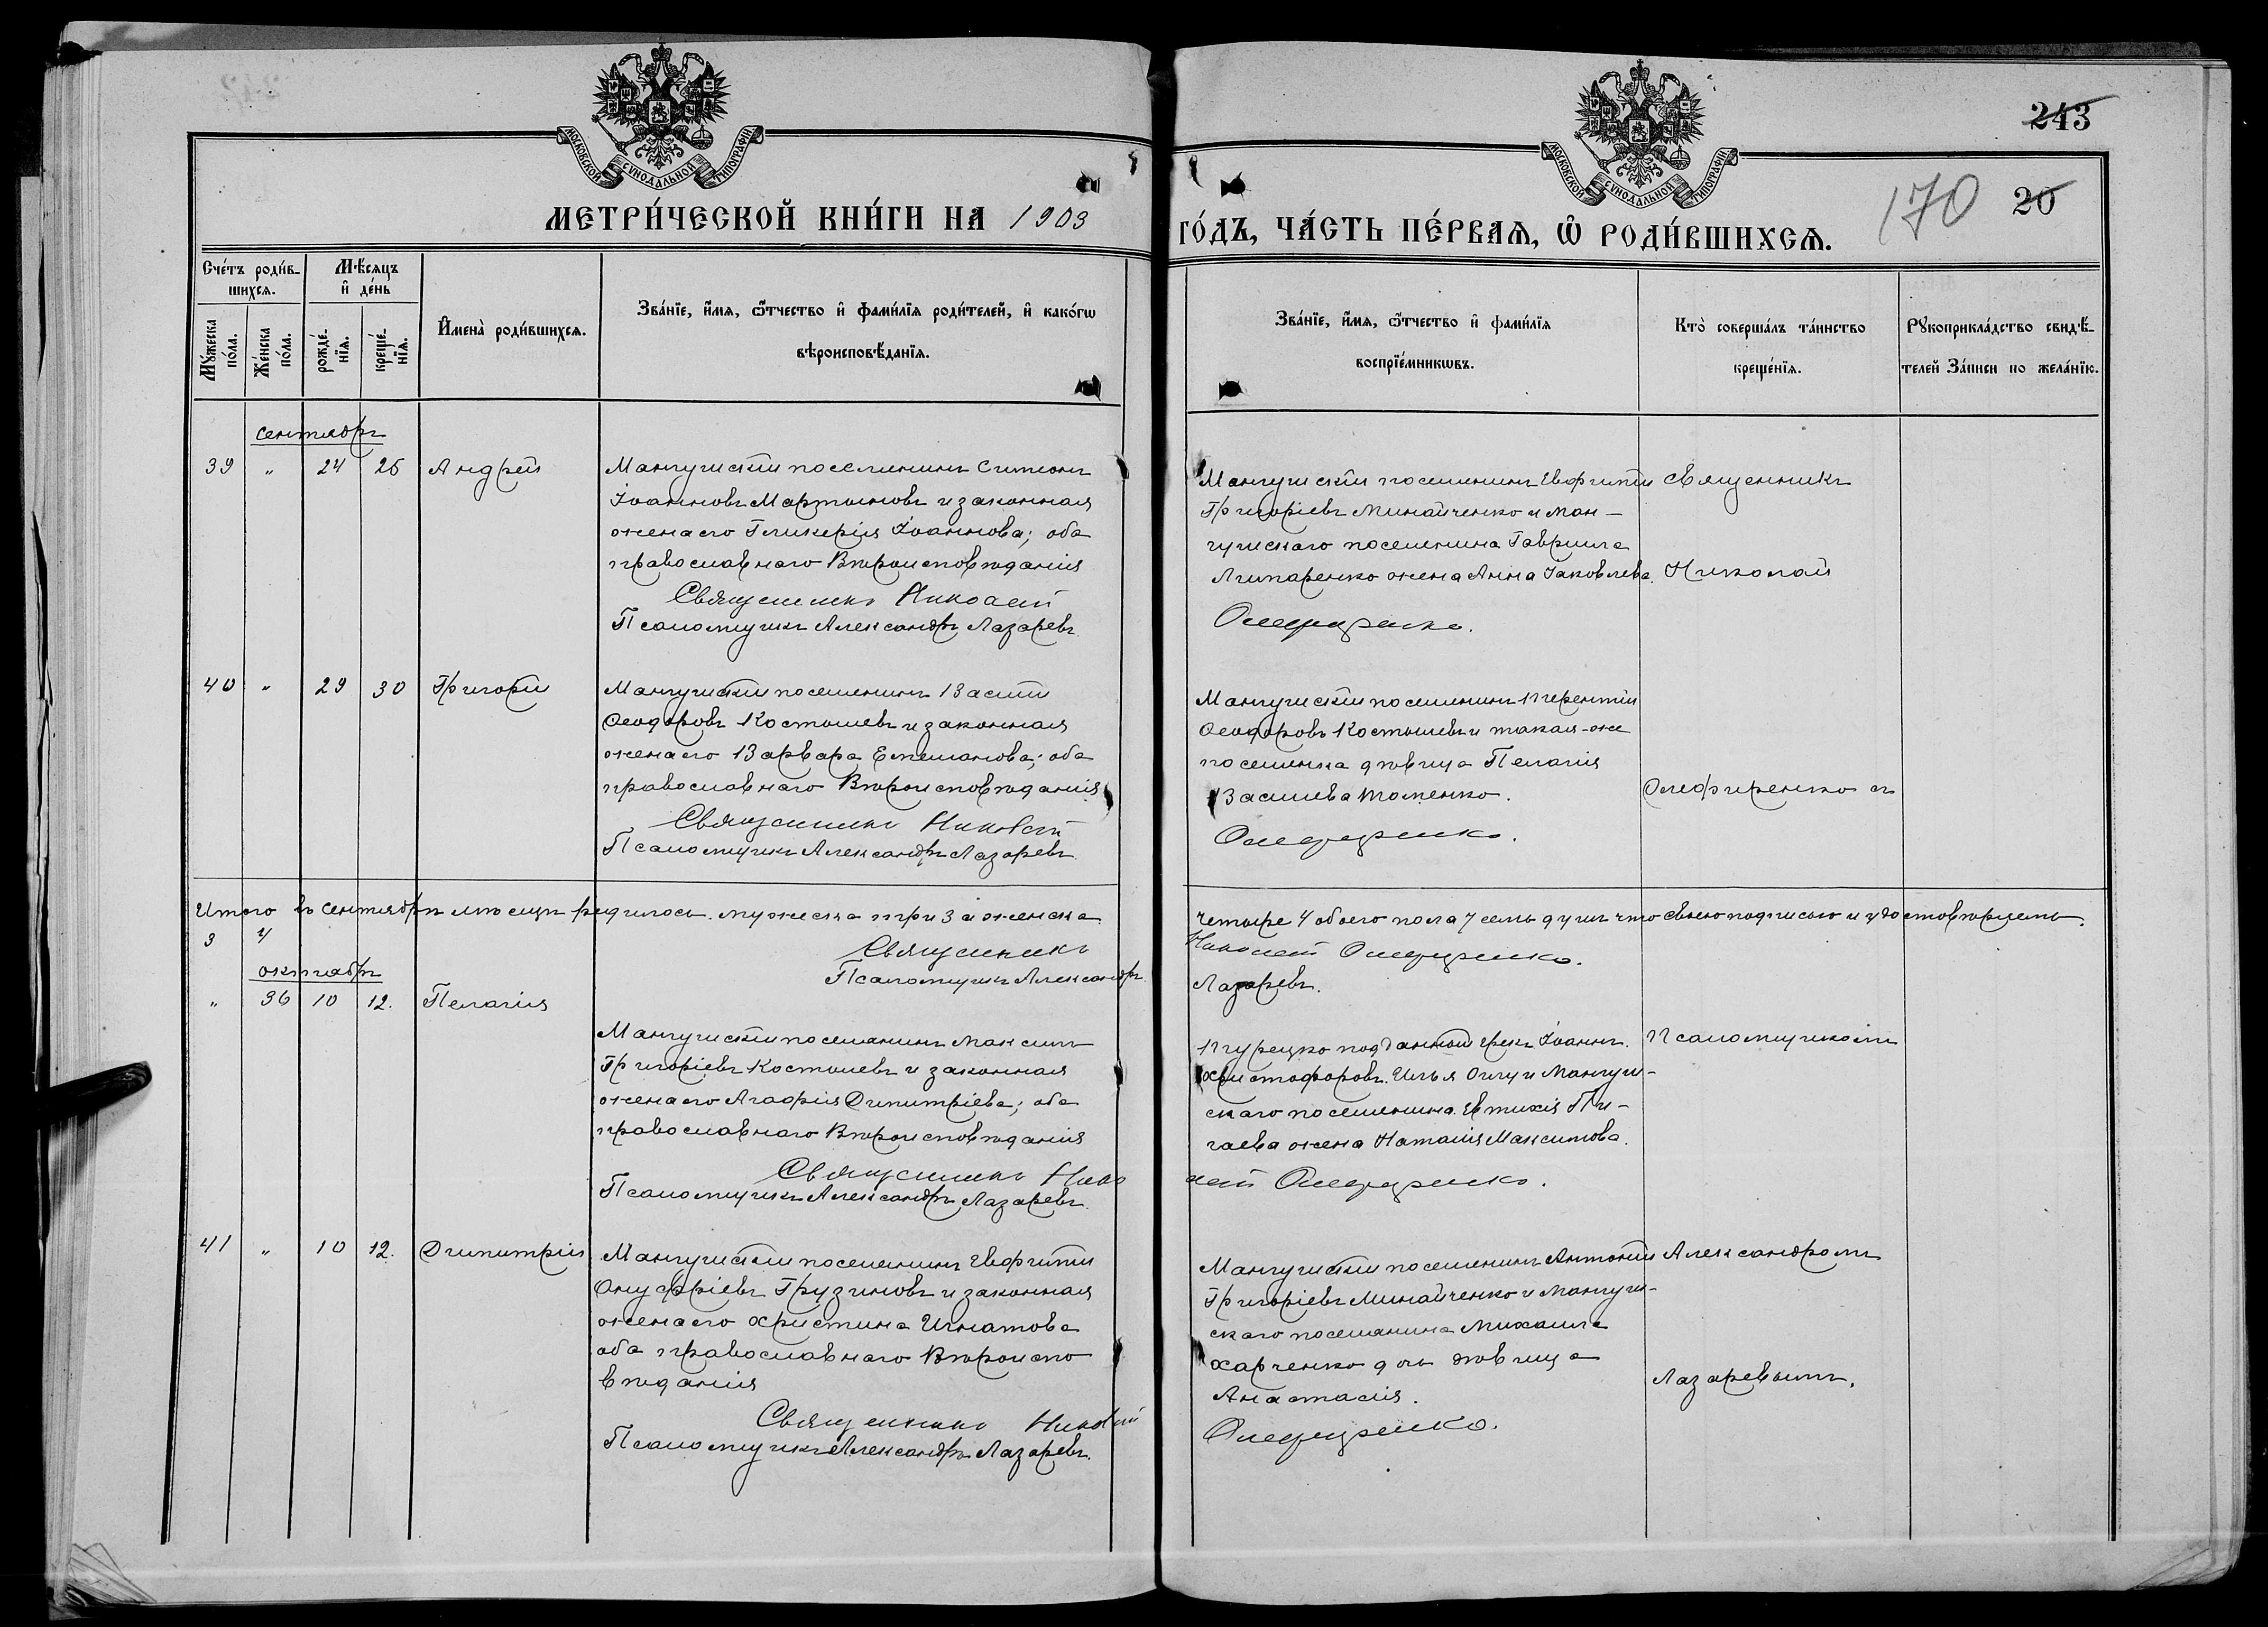 МОСКОВСКОЙ СѴНОДАЛЬНОЙ ТИПОГРАФІИ
МЕТРИ́ЧЕСКОЙ КНИ́ГИ НА 1903
Сче́тъ роди́в-
шихся.
Мѣ́сяцъ
и҆ де́нь
Мꙋ́жеска
по́ла.
Же́нска
по́ла.
рожде́-
нїя.
креще́-
нїя.
И҆мена̀ роди́вшихся.
Зва́нїе, и҆́мя, ѻ҆́тчество и҆ фами́лїя роди́телей, и҆ како́гѡ
вѣроисповѣ́данїя.
сентябрь
39 " 24 25 Андрей
Мангушскій поселянинъ Симеонъ
Іоанновъ Мартыновъ и законная
жена его Гликерія Іоаннова; оба
православнаго Вѣроисповѣданія
Священникъ Николай
Псаломщикъ Александръ Лазаревъ
40 " 29 30 Григорій
Мангушскій поселянинъ Василій
Ѳеодоровъ Костышевъ и законная
жена его Варвара Емельянова; оба
православнаго Вѣроисповѣданія
Священникъ Николай
Псаломщикъ Александръ Лазаревъ
Итого въ сентябрѣ мѣсяцѣ родилось мужеска три 3 а женска
3 4
Священникъ
Псаломщикъ Александръ
октябрь
" 36 10 12. Пелагія
Мангушскій поселянинъ Максимъ
Григоріевъ Костышевъ и законная
жена его Агафія Димитріева; оба
православнаго Вѣроисповѣданія
Священникъ Нико
Псаломщикъ Александръ Лазаревъ
41 " 10 12. Димитрій
Мангушскій поселянинъ Евфимій
Онуфріевъ Грузиновъ и законная
жена его Христина Игнатова
оба православнаго Вѣроиспо
вѣданія
Священникъ Николай
Псаломщикъ Александръ Лазаревъ.
243
МОСКОВСКОЙ СѴНОДАЛЬНОЙ ТИПОГРАФІИ
170 20
ГО́ДЪ, ЧА́СТЬ ПЕ́РВАЯ, Ѽ РОДИ́ВШИХСЯ.
Зва́нїе, и҆́мя, ѻ҆́тчество и҆ фами́лїя
воспрїе́мникѡвъ.
Кто̀ соверша́лъ та́инство
креще́нїя.
Рꙋкоприкла́дство свидѣ́-
телей За́писи по жела́нїю.
Мангушскій поселянинъ Евфимій
Григоріевъ Минайченко и Ман-
гушскаго поселянина Гавріила
жена Анна Іаковлева.
Олефиренко.
Священникъ
Николай
Мангушскій поселянинъ Терентій
Ѳеодоровъ Костышевъ и такая-же
поселянка дѣвица Пелагія
Васильева Томенко.
Олефиренко.
Олефиренко съ
четыре 4 обоего пола 7 семь душъ что своею подписью и удостовѣряемъ.
Николай Олефиренко.
Лазаревъ.
Турецко подданный грекъ Іоаннъ
Христофоровъ Илья Оглу и Мангуш-
скаго поселянина Евтихія Пи-
гаева жена Наталія Максимова.
лай Олефиренко.
Псаломщикомъ
Мангушскій поселянинъ Антоній
Григоріевъ Минайченко и Мангуш-
скаго поселянина Михаила
Харченко дочь дѣвица
Анастасія.
Олефиренко.
Александромъ
Лазаревымъ.